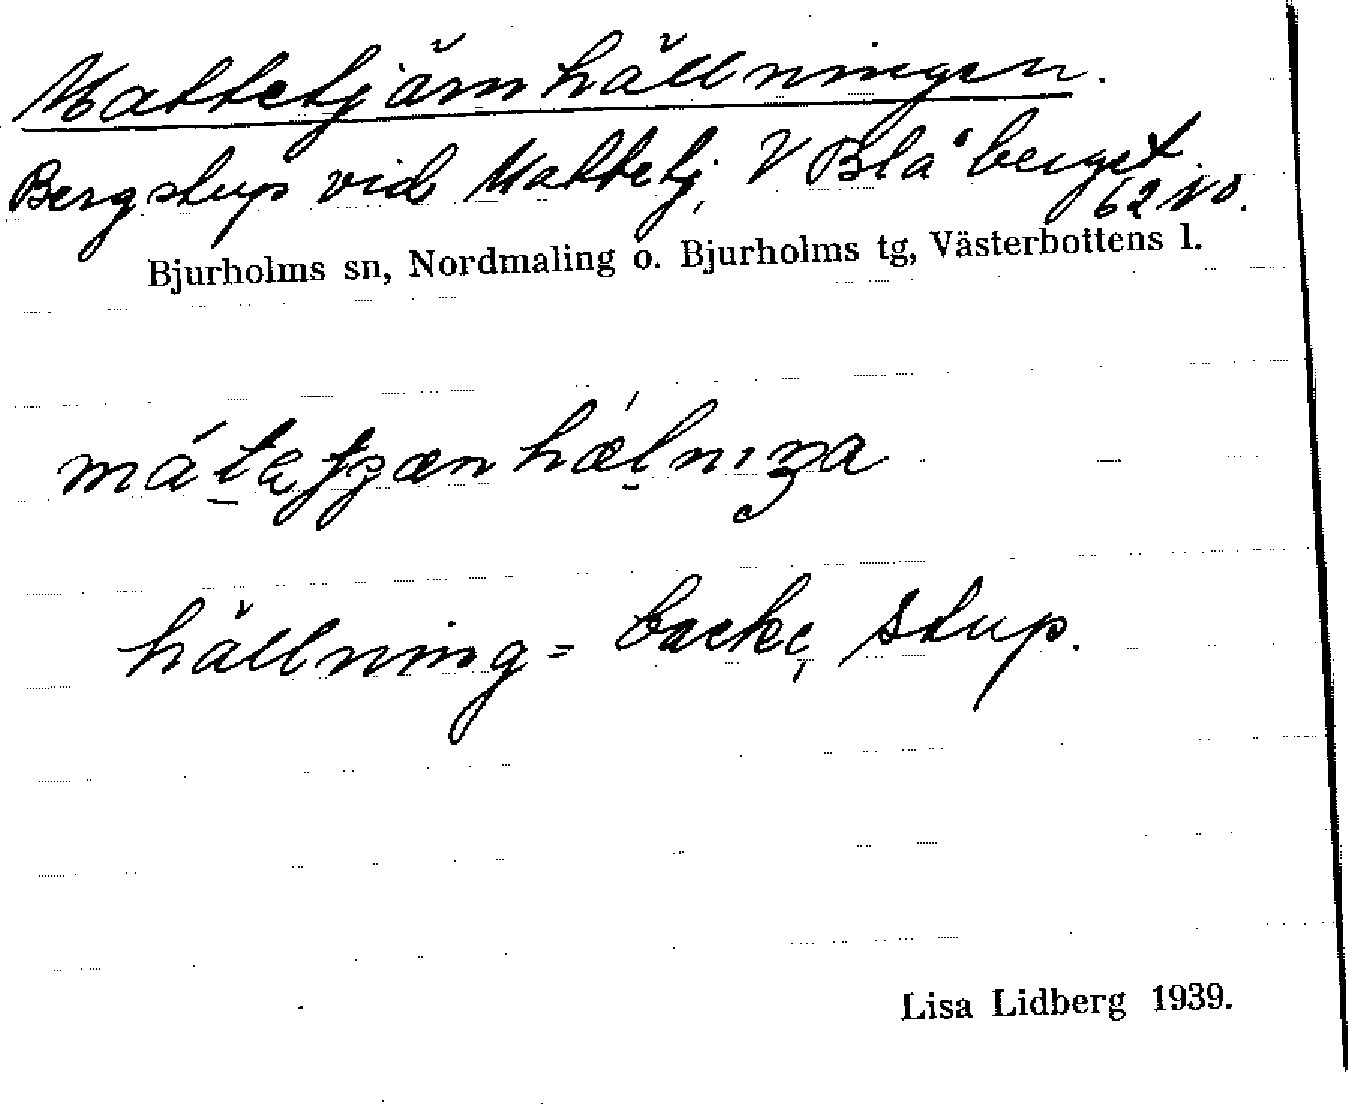 Mattetjärnhällningen.
Bergstup vid Mattetj, V Blåberget.
62 NO.
Bjurholms sn, Nordmaling o. Bjurholms tg, Västerbottens l.
hällning = backe, stup.
Lisa Lidberg 1939.